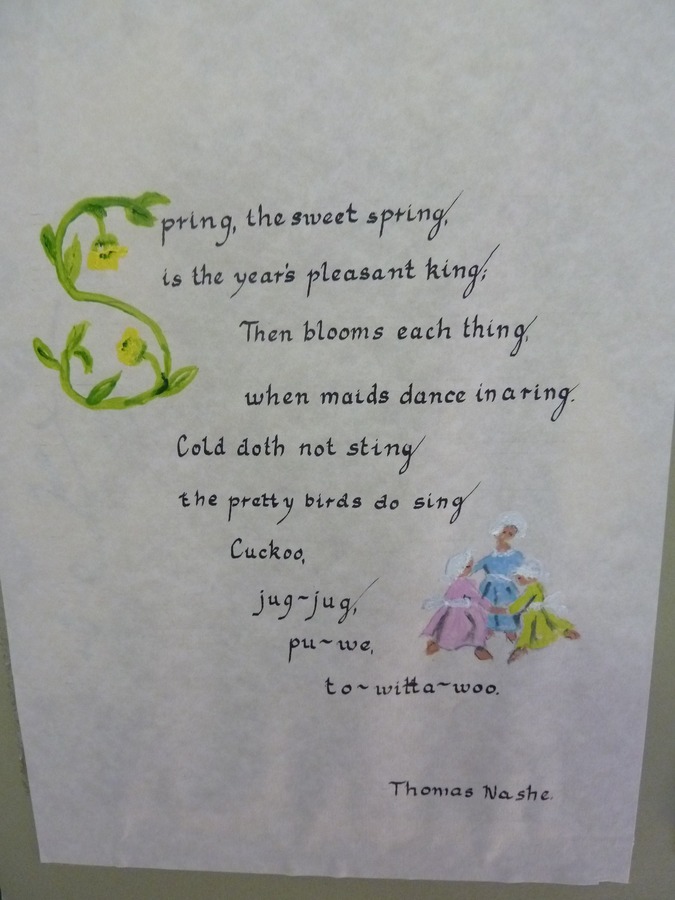 Spring, the sweet spring,
is the year's pleasant king;
Then blooms each thing,
when maids dance in a ring.
Cold doth not sting
the pretty birds do sing
Cuckoo,
jug~jug,
pu~we,
to~witta~woo.
Thomas Nashe.